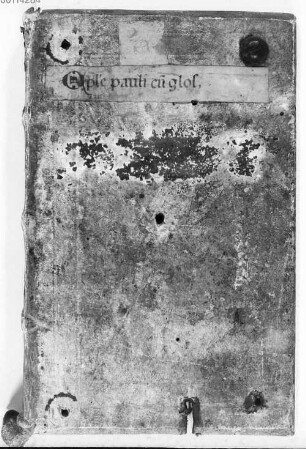 00114204
Eple pauli cū glos.